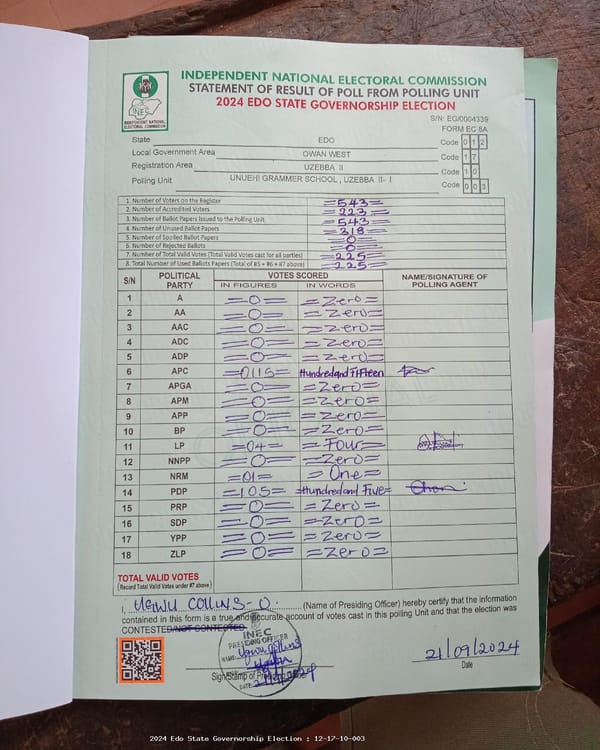 INDEPENDENT NATIONAL ELECTORAL COMMISSION
STATEMENT OF RESULT OF POLL FROM POLLING UNIT
2024 EDO STATE GOVERNORSHIP ELECTION
INEC
INDEPENDENT NATIONAL
ELECTORAL COMMISSION
S/N: EG/0004339
FORM EC 8A
State EDO Code 012
Local Government Area OWAN WEST Code 17
Registration Area UZEBBA II Code 10
Polling Unit UNUEHI GRAMMER SCHOOL , UZEBBA II- I Code 003
1. Number of Voters on the Register =543=
2. Number of Accredited Voters =223=
3. Number of Ballot Papers Issued to the Polling Unit =543=
4. Number of Unused Ballot Papers =318=
5. Number of Spoiled Ballot Papers =0=
6. Number of Rejected Ballots =0=
7. Number of Total Valid Votes (Total Valid Votes cast for all parties) =225=
8. Total Number of Used Ballots Papers (Total of #5 + #6 + #7 above) =225=
S/N POLITICAL PARTY VOTES SCORED NAME/SIGNATURE OF POLLING AGENT
IN FIGURES IN WORDS
1 A =0= =Zero=
2 AA =0= =Zero=
3 AAC =0= =Zero=
4 ADC =0= =Zero=
5 ADP =0= =Zero=
6 APC =0115= Hundred and Fifteen
7 APGA =0= =Zero=
8 APM =0= =Zero=
9 APP =0= =Zero=
10 BP =0= =Zero=
11 LP =04= =Four=
12 NNPP =0= =Zero=
13 NRM =01= =One=
14 PDP =105= =Hundred and Five=
15 PRP =0= =Zero=
16 SDP =0= =Zero=
17 YPP =0= =Zero=
18 ZLP =0= =Zero=
TOTAL VALID VOTES
(Record Total Valid Votes under #7 above)
I, UGWU COLLINS- O. (Name of Presiding Officer) hereby certify that the information
contained in this form is a true and accurate account of votes cast in this polling Unit and that the election was
CONTESTED/NOT CONTESTED
INEC
PRESIDING OFFICER
NAME: Ugwu Collins
DATE: 21/9/2024
Sign/Stamp of
21/09/2024
Date
2024 Edo State Governorship Election : 12-17-10-003